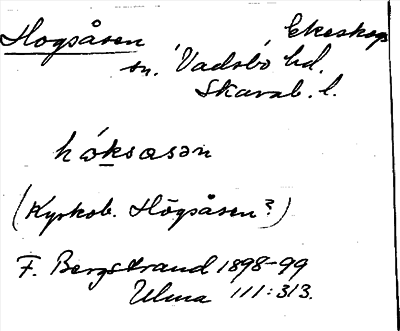 Hogsåsen Ekeskog
sn. Vadsbo hd.
Skarab. l.
hòksasən
(Kyrkob. Högsåsen?)
F. Bergstrand 1898-99
Ulma 111:313.